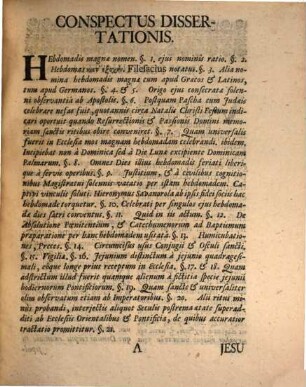 CONSPECTUS DISSER-
TATIONIS.
Hebdomadis magnæ nomen. §. 1. ejus nominis ratio. §. 2.
Hebdomas Filesacius notatus. §. 3. Alia no-
mina hebdomadis magnæ cum apud Græcos & Latinos,
tum apud Germanos. §. 4. & 5. Origo ejus consecrata solen-
ni observantiâ ab Apostolis. §. 6. Postquam Pascha cum Judæis
celebrare nefas fuit, quotannis circa Natalia Christi Festum indi-
cari oportuit quando Resurrectionis & Passionis Domini memo-
riam sanctis ritibus obire conveniret. §. 7. Quam universalis
fuerit in Ecclesia mos magnam hebdomadam celebrandi, ibidem.
Incipiebat non à Dominica sed à Die Lunæ excipiente Dominicam
Palmarum, §. 8. Omnes Dies illius hebdomadis feriati liberi-
que à servis operibus. §. 9. Justitium, & à civilibus cognitio-
nibus Magistratus solennis vacatio per istam hebdomadem. Capti-
vi vinculis soluti. Hieronymus Savanarola ab ipsis filiis suis hac
hebdomade torquetur. §. 10. Celebrati per singulos ejus hebdoma-
da dies sacri conventus. §. 11. Quid in iis actum. §. 12. De
Absolutione Pœnitentium, & Catechumenorum ad Baptismum
præparatione per hanc hebdomadem usitata. §. 13. Humicubatio-
nes, Preces. §. 14. Circumcisus usus Conjugii & Osculi sancti,
§. 15. Vigiliæ, §. 16. Jejunium distinctum à jejunio quadrages-
mali, eôque longe prius receptum in Ecclesia. §. 17. & 18. Quam
adstrictum illud fuerit quamque alienum à fictitia specie jejunii
hodiernorum Pontificiorum. §. 19. Quam sanctè & universaliter
olim observatum etiam ab Imperatoribus. §. 20. Alii ritus mi-
nus probandi, interjectis aliquot seculis postrema ætate superad-
diti ab Ecclesiis Orientalibus & Pontificia, de quibus accuratior
tractatio promittitur. §. 21.
A JESU